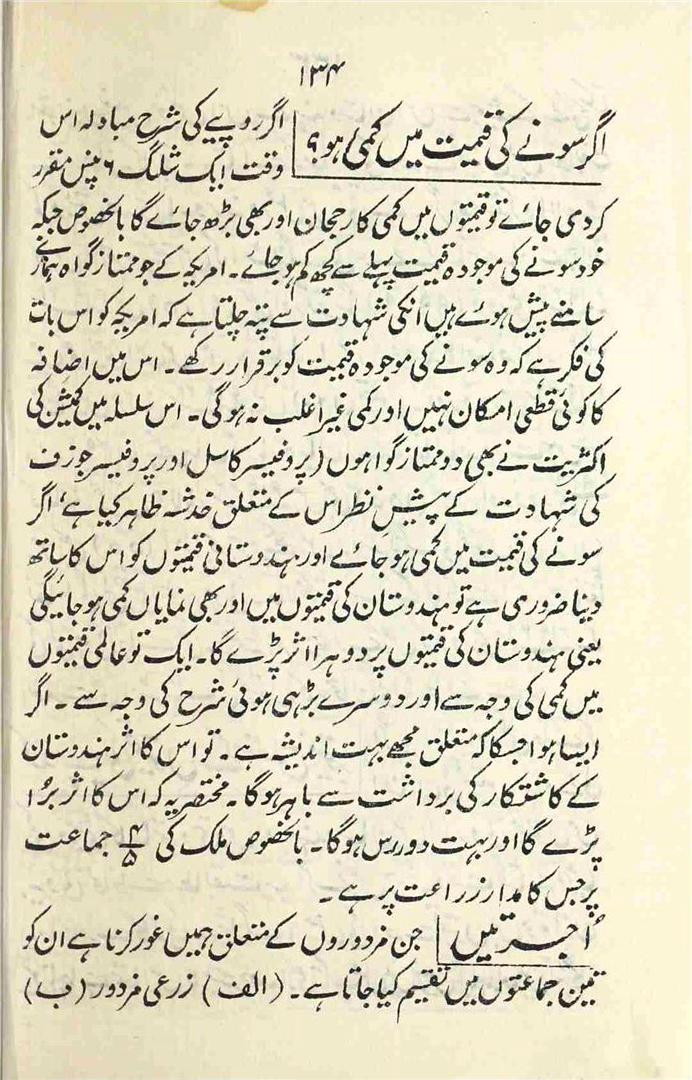 ۱۳۴
اگر سونے کی قیمیت میں کمی ہو؟ اگر روپیے کی شرح مبادلہ اس
وقت ایک شلنگ ۶ پنس مقرر
کر دی جائے تو قیمتوں میں کمی کا رجحان اور بھی بڑھ جائے گا بالخصوص جبکہ
خود سونے کی موجودہ قیمت پہلے سے کچھ کم ہو جائے۔ امریکہ کے جو ممتاز گواہ ہمارے
سامنے پیش ہوئے ہیں انکی شہادت سے پتہ چلتا ہے کہ امریکہ کو اس بات
کی فکر ہے کہ وہ سونے کی موجودہ قیمت کو برقرار رکھے۔ اس میں اضافہ
کا کوئی قطعی امکان نہیں اور کمی غیر اغلب نہ ہوگی۔ اس سلسلہ میں کمیشن کی
اکثریت نے بھی دو ممتاز گواہوں (پروفیسر کاسل اور پروفیسر جوزف
کی شہادت کے پیش نظر اس کے متعلق خدشہ ظاہر کیا ہے، اگر
سونے کی قیمت میں کمی ہو جائے اور ہندوستانی قیمتوں کو اس کا ساتھ
دینا ضروری ہے تو ہندوستان کی قیمتوں میں اور بھی نمایاں کمی ہو جائیگی
یعنی ہندوستان کی قیمتوں پر دوہرا اثر پڑے گا۔ ایک تو عالمی قیمتوں
میں کمی کی وجہ سے اور دوسرے بڑہی ہوئی شرح کی وجہ سے۔ اگر
ایسا ہوا جسکا کہ متعلق مجھے بہت اندیشہ ہے۔ تو اس کا اثر ہندوستان
کے کاشتکار کی برداشت سے باہر ہوگا۔ مختصر یہ کہ اس کا اثر برُا
پڑے گا اور بہت دور رس ہوگا۔ بالخصوص ملک کی ۴/۵ جماعت
پر جس کا مدار زراعت پر ہے۔
اُجرتیں جن مزدوروں کے متعلق ہمیں غور کرنا ہے ان کو
تین جماعتوں میں تقسیم کیا جاتا ہے۔ (الف) زرعی مزدور (ب)